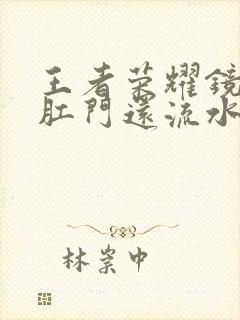 王者荣耀镜
肛門還流水
林崇中